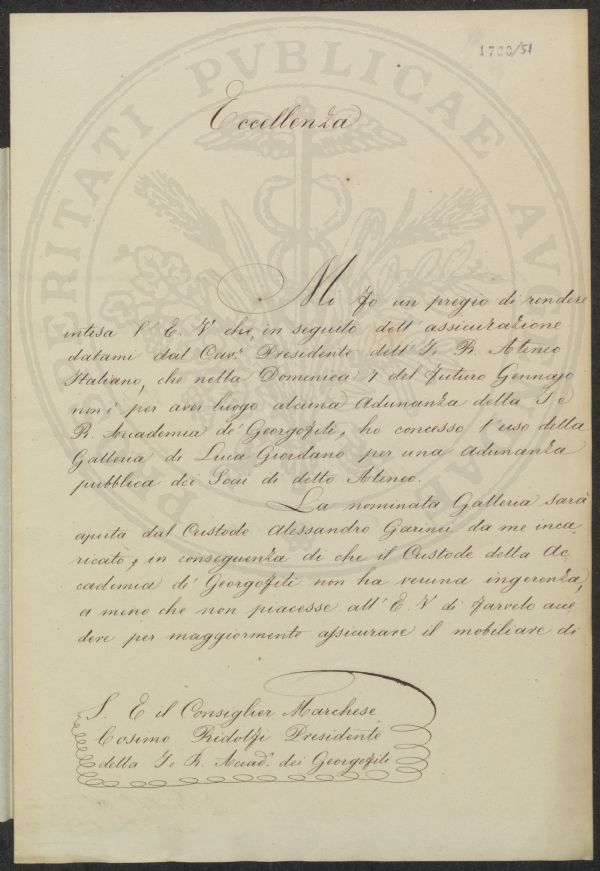 1700/51
Eccellenza
Mi fo un pregio di rendere
intesa l'E. V. che, in seguito dell'assicurazione
datami dal Cav.r Presidente dell'I. R. Ateneo
Italiano, che nella Domenica 4 del futuro Gennajo
non è per aver luogo alcuna Adunanza della I e
R. Accademia de' Georgofili, ho concesso l'uso della
Galleria di Luca Giordano per una adunanza
pubblica dei Soci di detto Ateneo.
La nominata Galleria sarà
aperta dal Custode Alessandro Garinei da me inca
ricato, in conseguenza di che il Custode della Ac
cademia de' Georgofili non ha veruna ingerenza,
a meno che non piacesse all'E. V. di farvelo acce
dere per maggiormente assicurare il mobiliare di
S. E il Consiglier Marchese
Cosimo Ridolfi Presidente
della I. R. Accad.a dei Georgofili
PROSPERITATI PUBLICAE